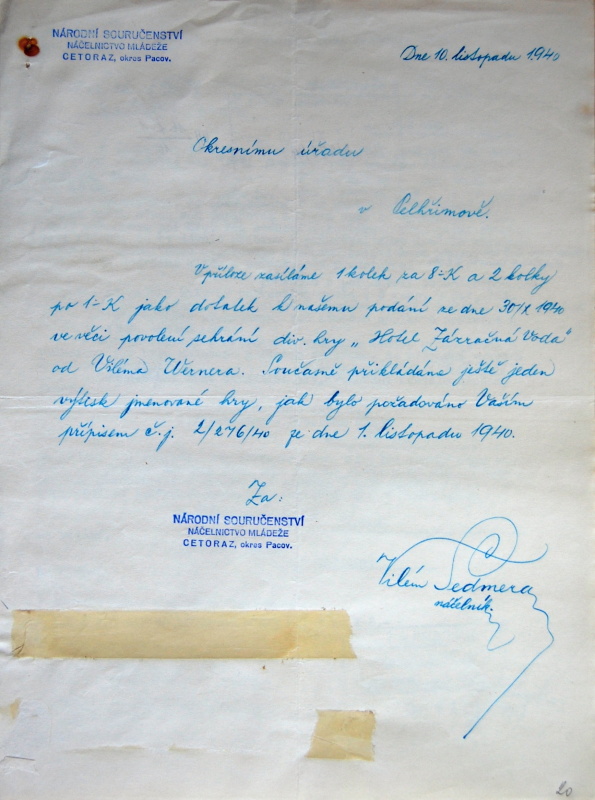 NÁRODNÍ SOURUČENSTVÍ
NÁČELNICTVO MLÁDEŽE
CETORAZ, okres Pacov.
Dne 10. listopadu 1940
Okresnímu úřadu
v Pelhřimově.
V příloze zasíláme 1 kolek za 8·-K a 2 kolky
po 1·-K jako dodatek k našemu podání ze dne 30/X 1940
ve věci povolení sehrání div. hry „Hotel Zázračná Voda"
od Viléma Wernera. Současně přikládána ještě jeden
výtisk jmenované hry, jak bylo požadováno Vaším
přípisem č.j. 2/276/40 ze dne 1. listopadu 1940.
Za:
NÁRODNÍ SOURUČENSTVÍ
NÁČELNICTVO MLÁDEŽE
CETORAZ, okres Pacov.
Vilém Sedmera
náčelník.
20